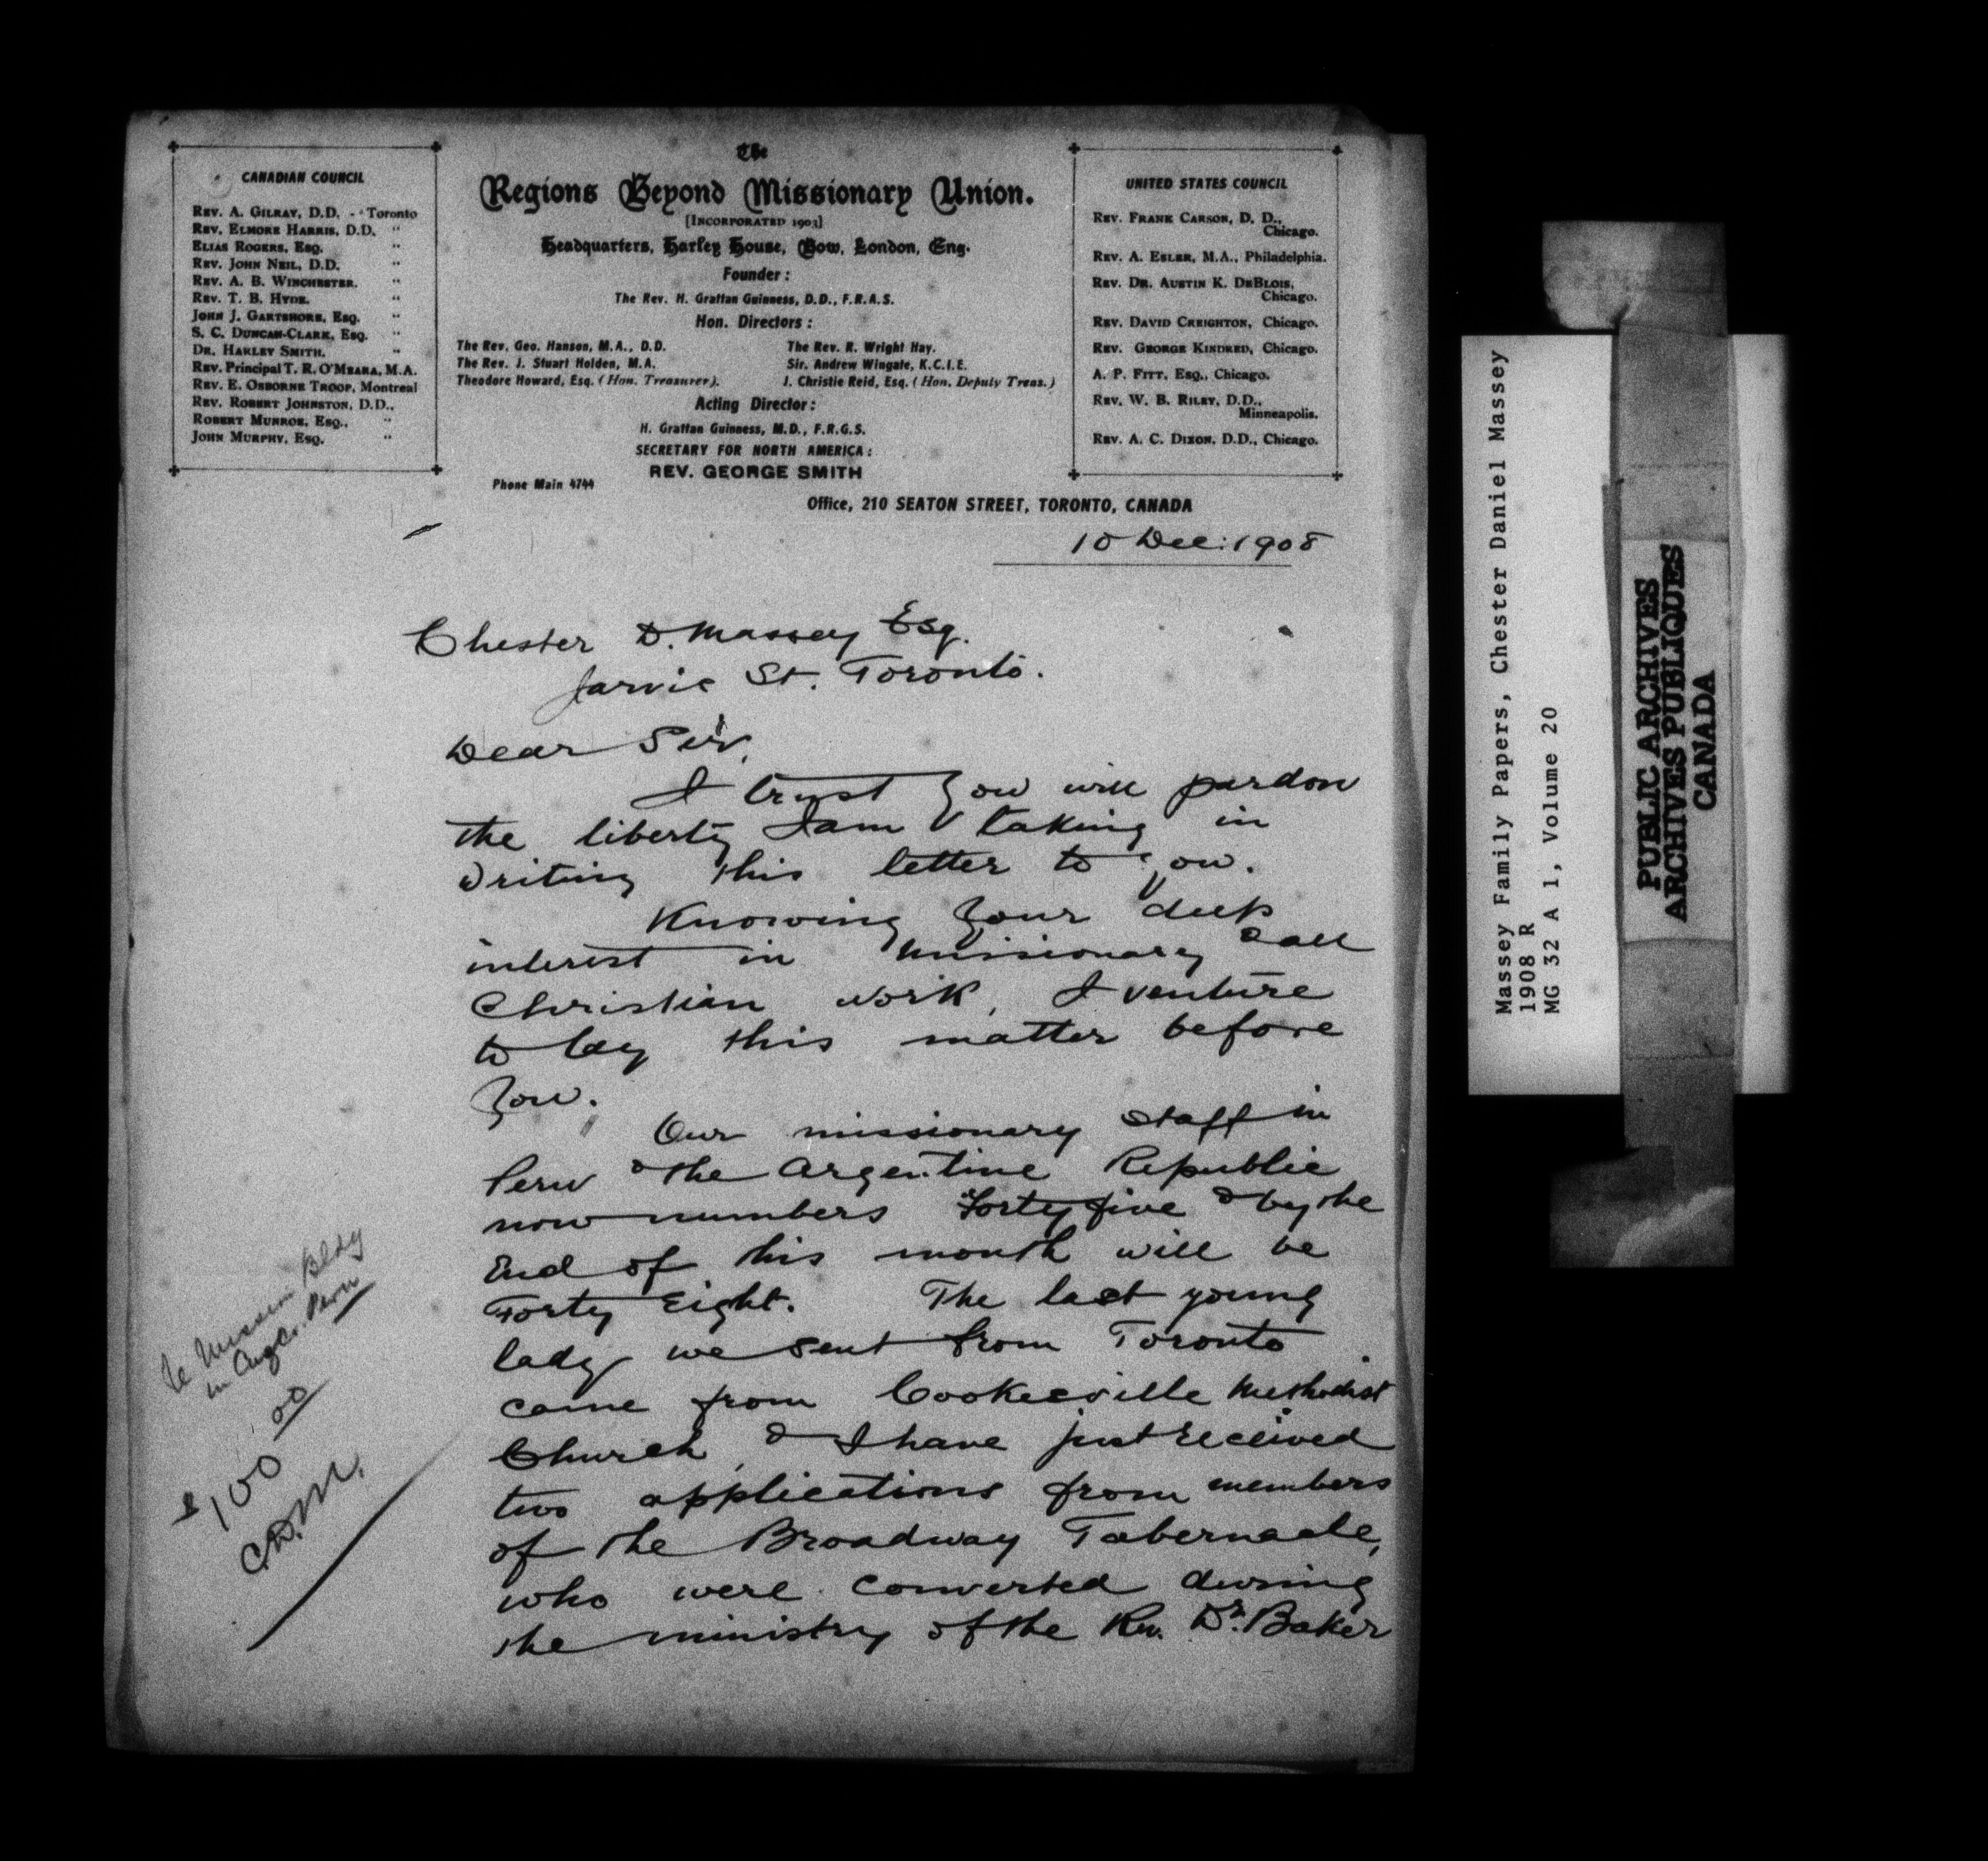 CANADIAN COUNCIL
REV. A. GILRAY, D.D. - - Toronto
REV. ELMORE HARRIS, D.D. "
ELIAS ROGERS, ESQ. "
REV. JOHN NEIL, D.D. "
REV. A. B. WINCHESTER. "
REV. T. B. HYDE. "
JOHN J. GARTSHORE, ESQ. "
S. C. DUNCAN-CLARK, ESQ. "
DR. HARLEY SMITH. "
REV. Principal T. R. O'MEARA, M.A.
REV. E. OSBORNE TROOP, Montreal
REV. ROBERT JOHNSTON, D.D., "
ROBERT MUNROE, ESQ., "
JOHN MURPHY, ESQ. "
The
Regions Beyond Missionary Union.
[INCORPORATED 1903]
Headquarters, Harley House, Bow, London, Eng.
Founder:
The Rev. H. Grattan Guinness, D.D., F.R.A.S.
Hon. Directors:
The Rev. Geo. Hanson, M.A., D.D. The Rev. R. Wright Hay.
The Rev. J. Stuart Holden, M.A. Sir. Andrew Wingate, K.C.I.E.
Theodore Howard, Esq. (Hon. Treasurer). J. Christie Reid, Esq. (Hon. Deputy Treas.)
Acting Director:
H. Grattan Guinness, M.D., F.R.G.S.
SECRETARY FOR NORTH AMERICA:
REV. GEORGE SMITH
Phone Main 4744
Office, 210 SEATON STREET, TORONTO, CANADA
UNITED STATES COUNCIL
REV. FRANK CARSON, D. D.,
Chicago.
REV. A. ESLER, M.A., Philadelphia.
REV. DR. AUSTIN K. DEBLOIS,
Chicago.
REV. DAVID CREIGHTON, Chicago.
REV. GEORGE KINDRED, Chicago.
A. P. FITT, ESQ., Chicago.
REV. W. B. RILEY, D.D.,
Minneapolis.
REV. A. C. DIXON, D.D., Chicago.
10 Dec: 1908
Chester D. Massey Esq.
Jarvis St. Toronto.
Dear Sir,
I trust you will pardon
the liberty I am taking in
writing this letter to you.
Knowing your deep
interest in missionary & all
Christian work, I venture
to lay this matter before
you.
Our missionary staff in
Peru & the Argentine Republic
now numbers Forty five & by the
End of this month will be
Forty Eight. The last young
lady we sent from Toronto
came from Cookesville Methodist
Church, & I have just received
two applications from members
of the Broadway Tabernacle,
who were converted during
the ministry of the Rev. Dr. Baker
Mission Bldg
in Peru
$100.00
C.D.M.
Massey Family Papers, Chester Daniel Massey
1908 R
MG 32 A 1, Volume 20
PUBLIC ARCHIVES
ARCHIVES PUBLIQUES
CANADA